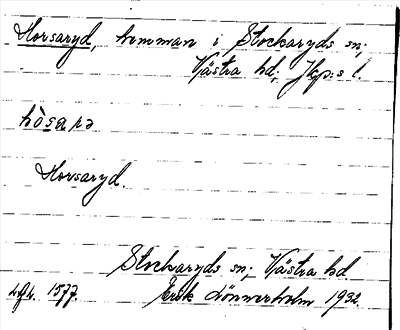 Horsaryd, hemman i Stockaryds sn;
Västra hd; Jkp:s l.
hòsarə
Horsaryd.
Stockaryds sn; Västra hd.
1577. Erik Lönnerholm 1932.